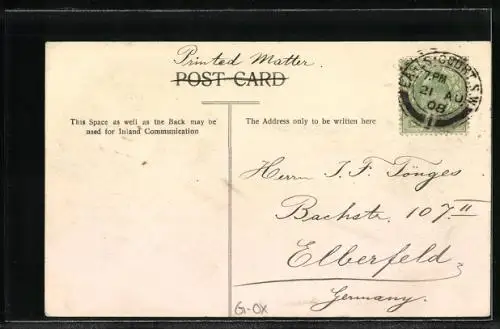 Printed Matter.
POST CARD
This Space as well as the Back may be
used for Inland Communication
The Address only to be written here
EARLS COURT. S.W.
7. PM
21 AU
08
Herrn J. F. Tönges
Bachstr. 107 II
Elberfeld
Germany.
G-OX